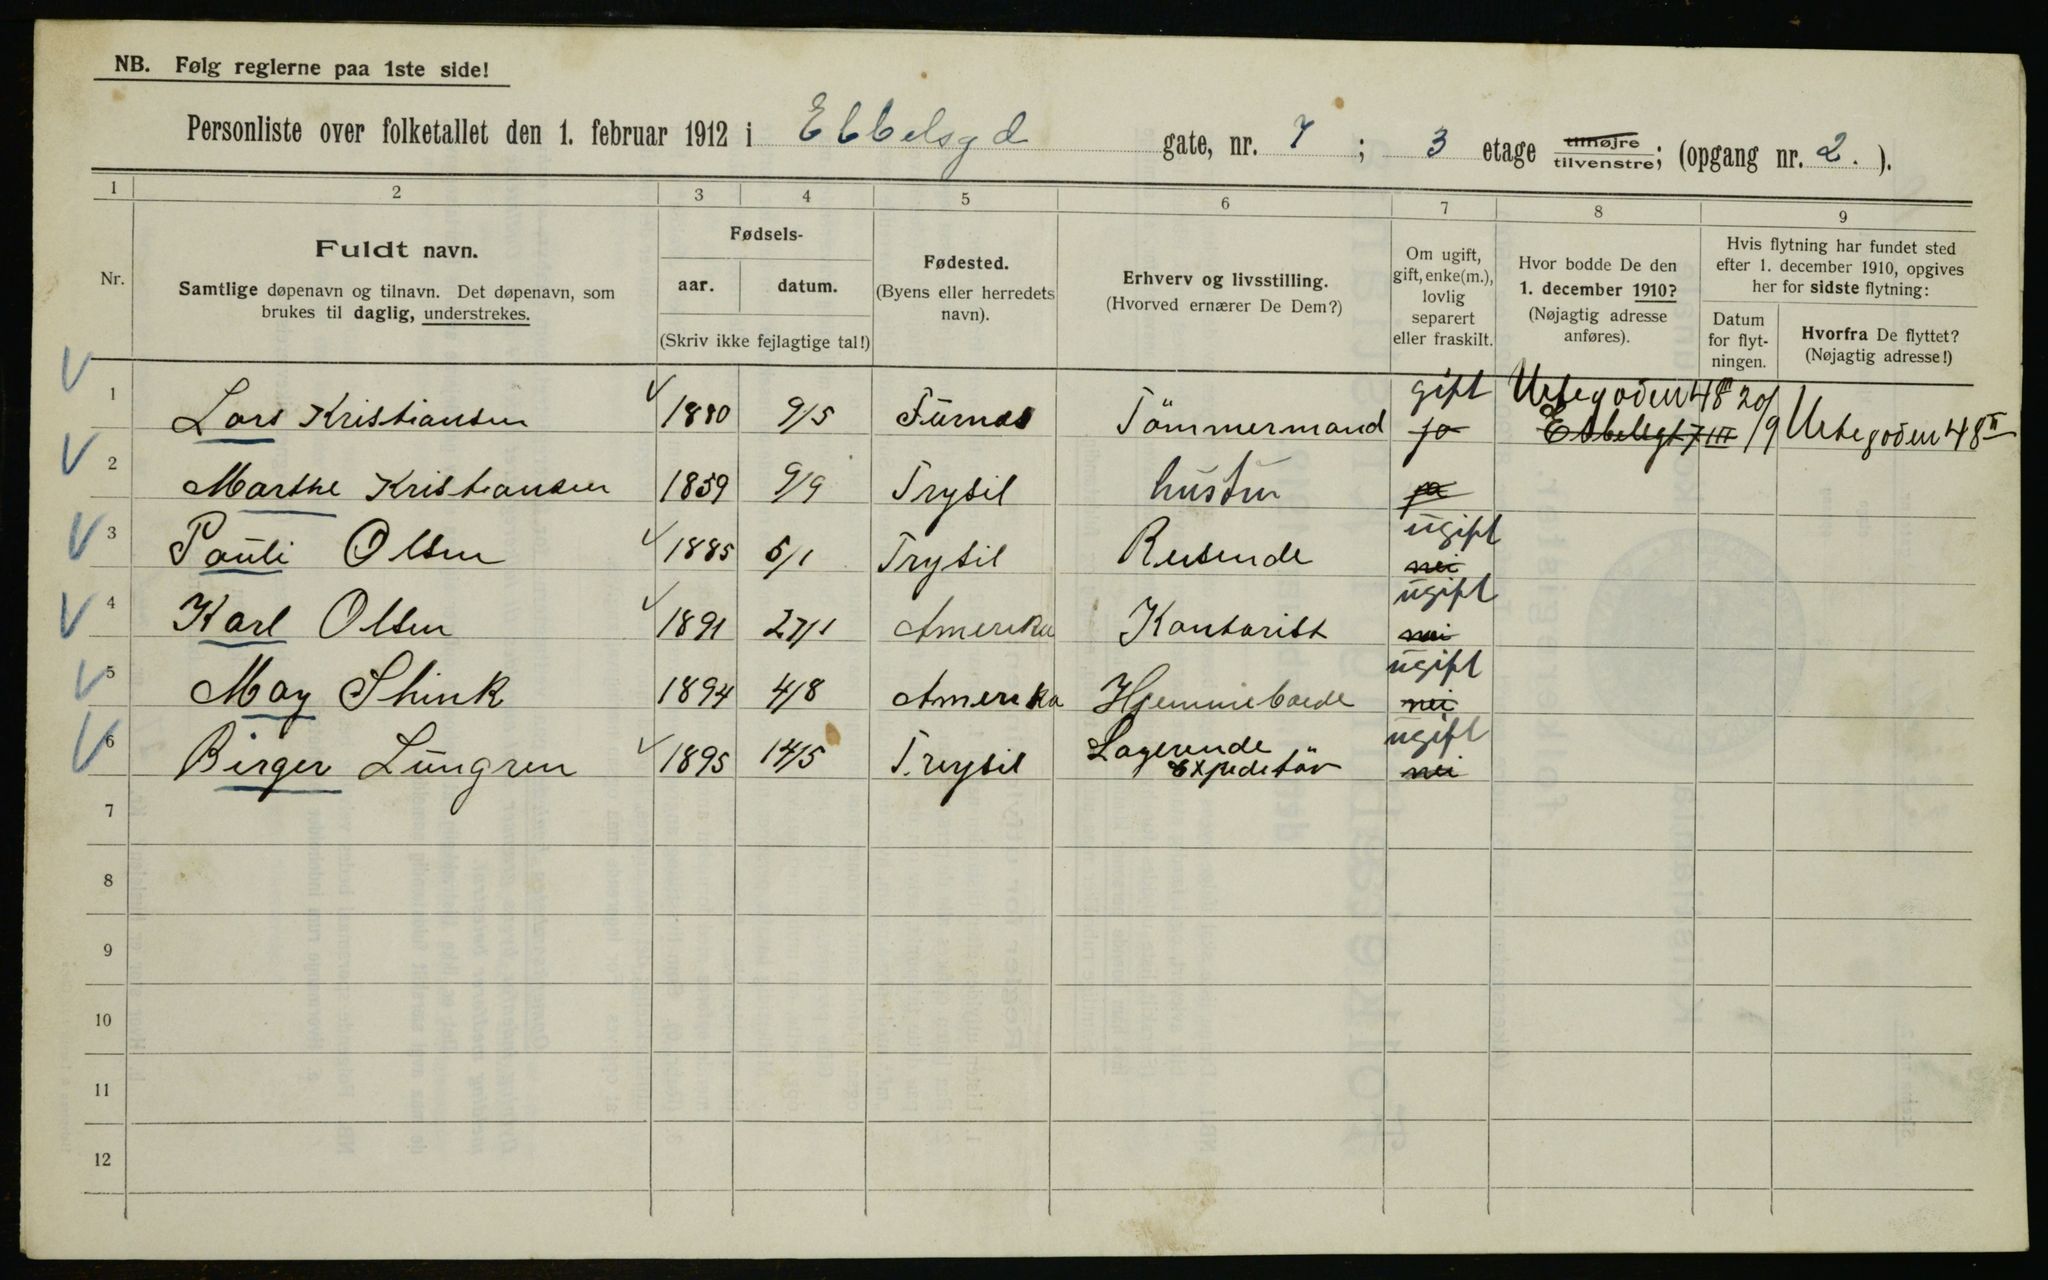 NB. Følg reglerne paa 1ste side!
Personliste over folketallet den 1. februar 1912 i Ebbelsgd gate, nr. 7 ; 3 etage tilhøjre tilvenstre; (opgang nr. 2. ).
1 2 3 4 5 6 7 8 9
Nr.
Fuldt navn.
Samtlige døpenavn og tilnavn. Det døpenavn, som
brukes til daglig, understrekes.
Fødsels-
aar. datum.
(Skriv ikke fejlagtige tal!)
Fødested.
(Byens eller herredets
navn).
Erhverv og livsstilling.
(Hvorved ernærer De Dem?)
Om ugift,
gift, enke(m.),
lovlig
separert
eller fraskilt.
Hvor bodde De den
1. december 1910?
(Nøjagtig adresse
anføres).
Hvis flytning har fundet sted
efter 1. december 1910, opgives
her for sidste flytning:
Datum
for flyt-
ningen.
Hvorfra De flyttet?
(Nøjagtig adresse!)
gift Urtegaden 48 III 20/9
1 Lars Kristiansen 1880 9/5 Furnes Tömmermand ja Ebbelsgt 7 III Urtegaden 48 II
2 Marthe Kristiansen 1859 9/9 Trysil hustru ja
ugift
3 Pauli Olsen 1885 5/1 Trysil Reisende nei
ugift
4 Karl Olsen 1891 27/1 Amerika Kontorist nei
ugift
5 May Shink 1894 4/8 Amerika Hjemmeboede nei
ugift
6 Birger Lungren 1895 14/5 Trysil Lagerende nei
Expeditör
7
8
9
10
11
12